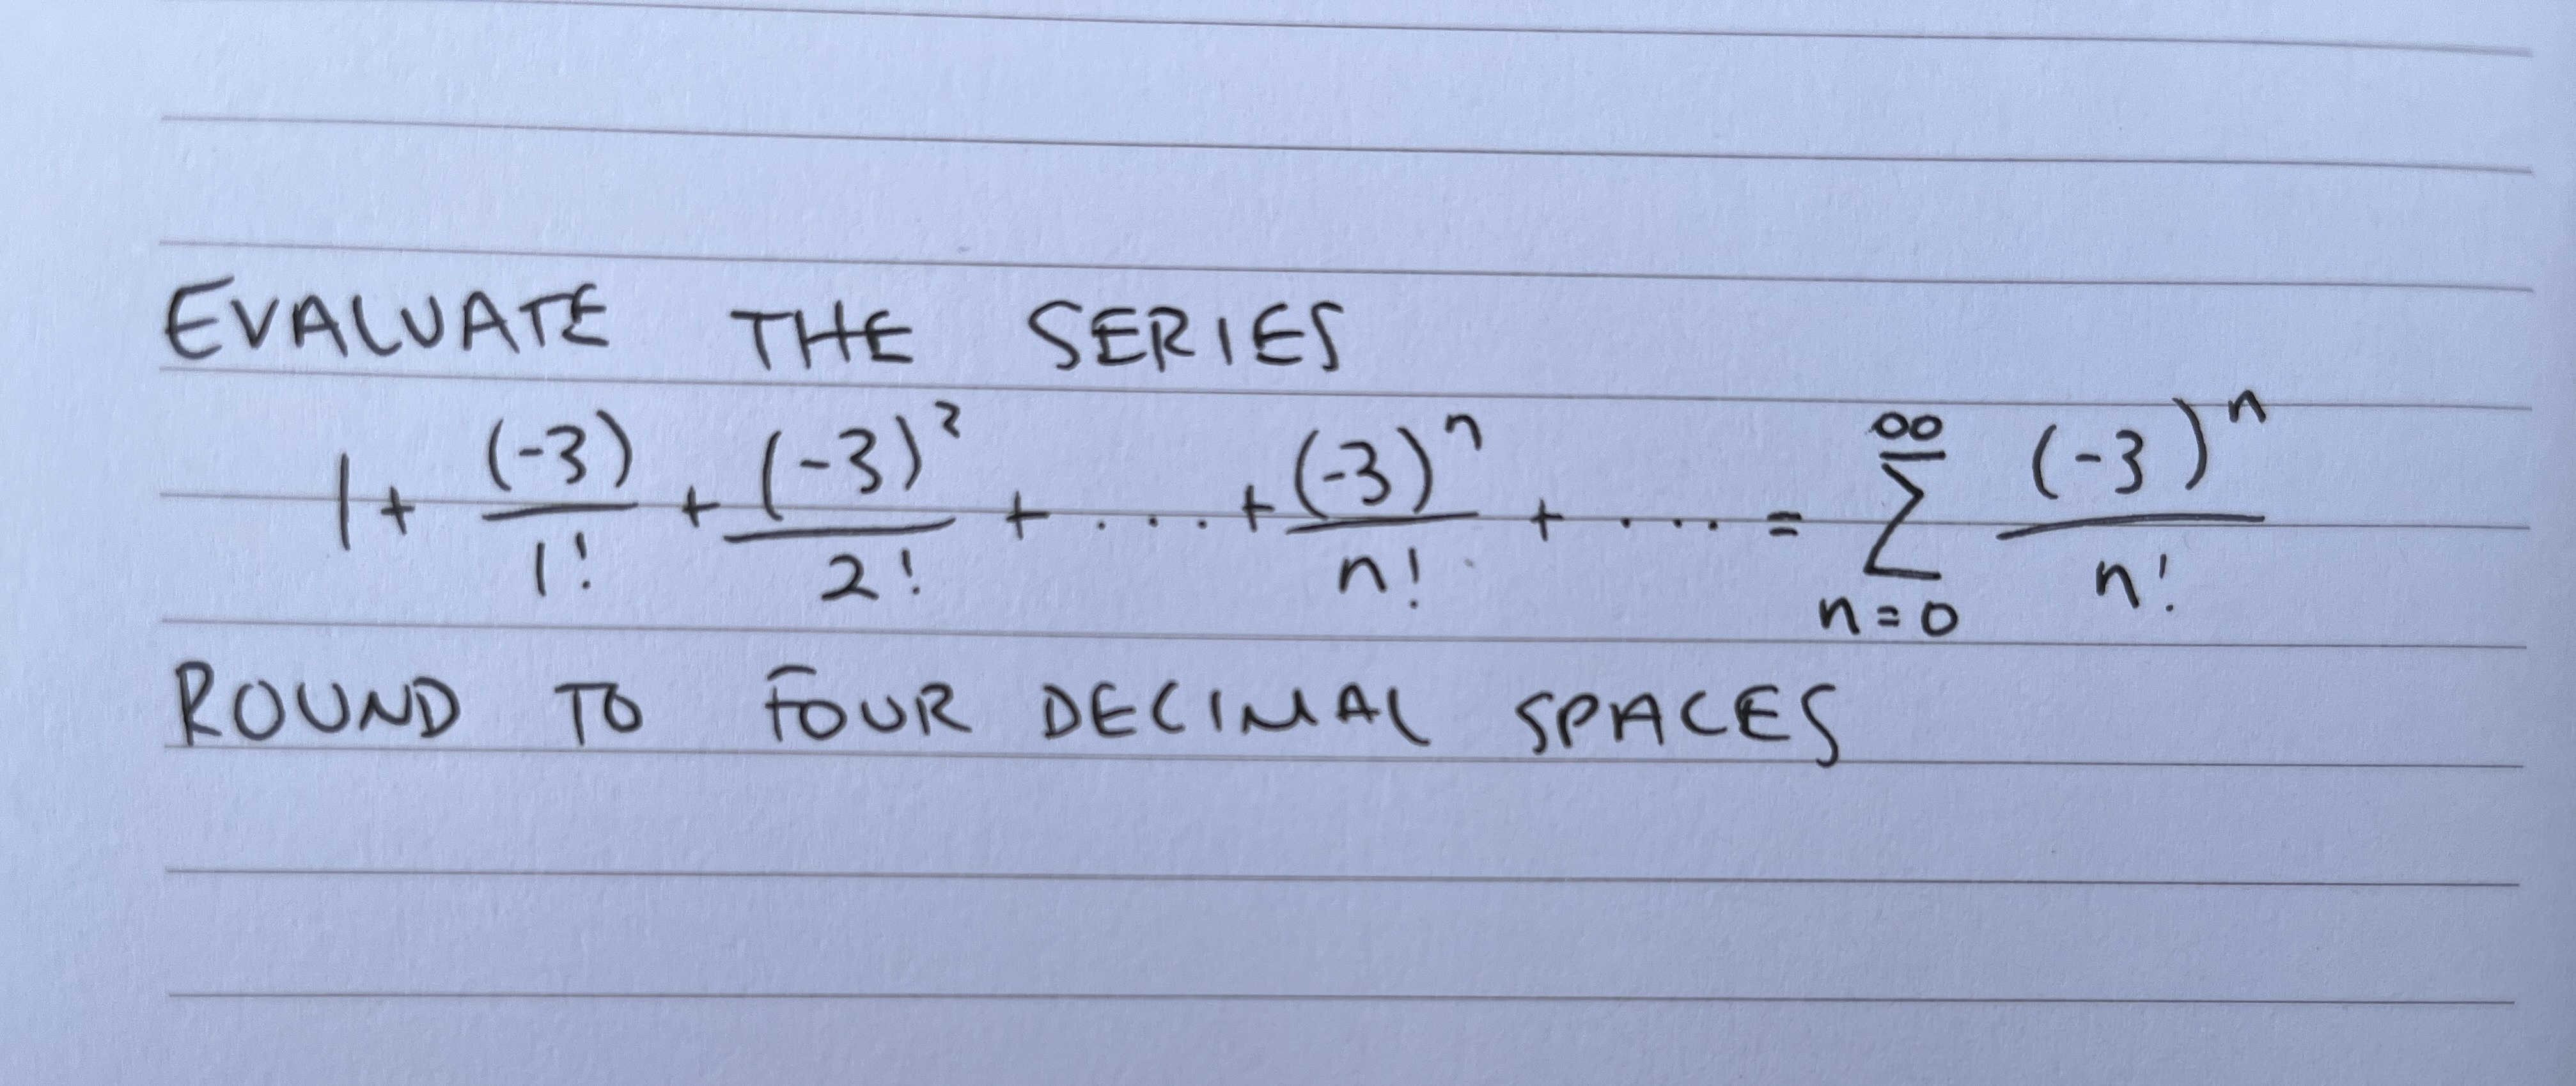 EVALUATE THE SERIES
1 + (-3)/1! + (-3)²/2! + .... + (-3)ⁿ/n! + .... = ∑_{n=0}^{∞} (-3)ⁿ/n!
ROUND TO FOUR DECIMAL SPACES